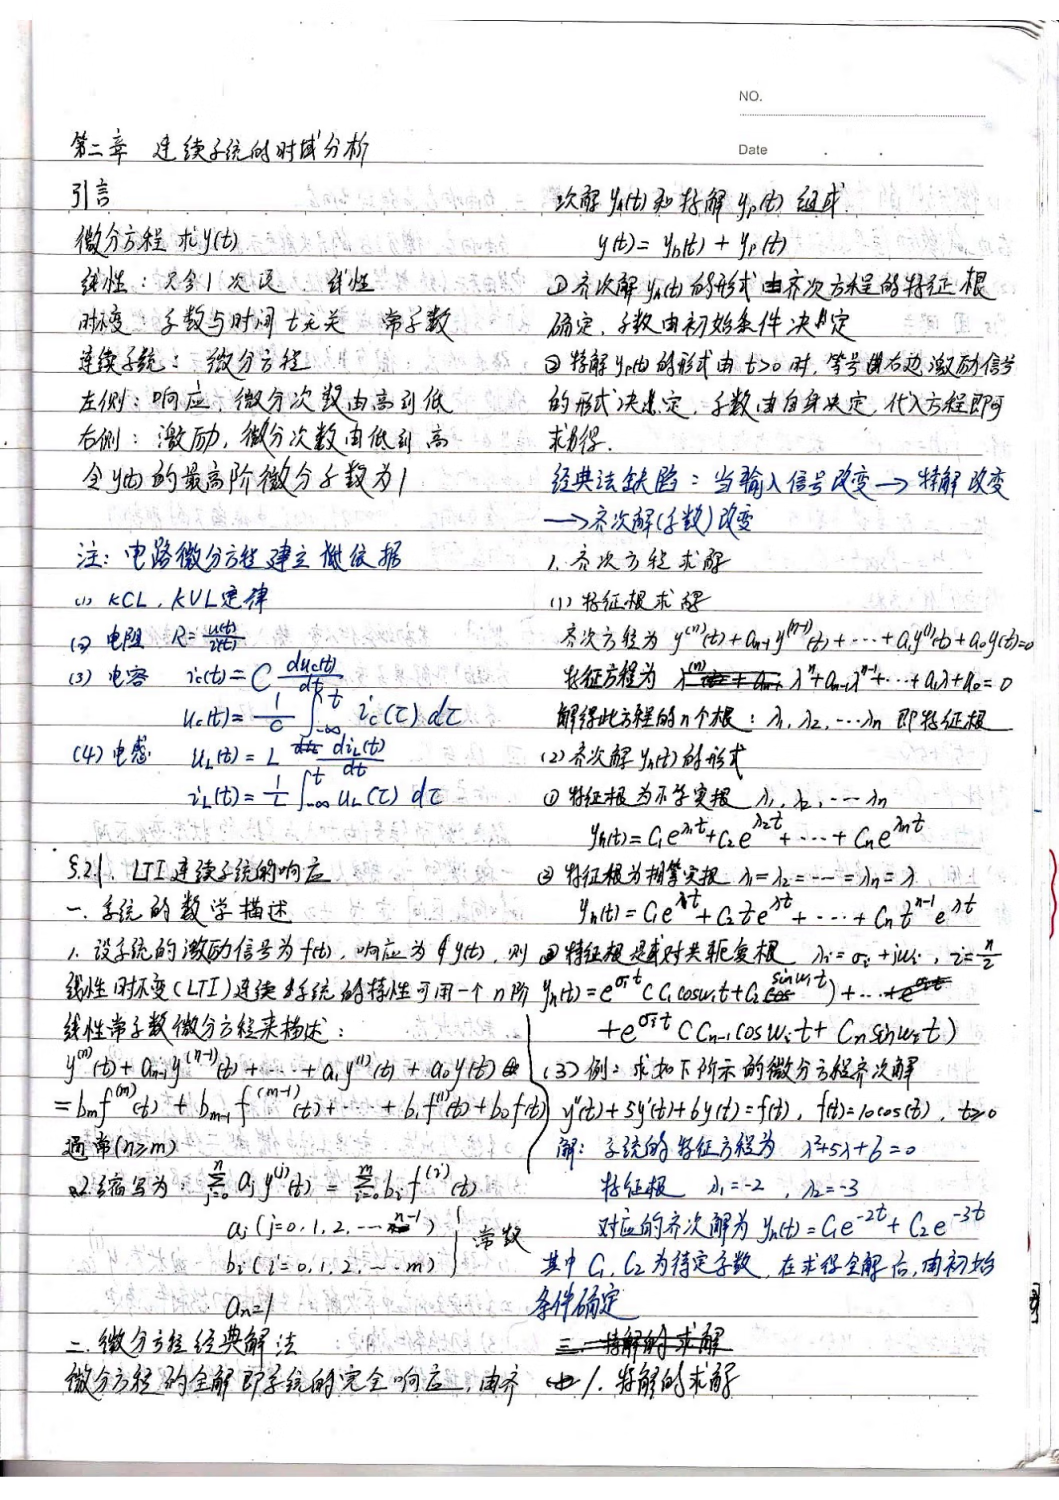 NO.
Date
第二章 连续系统的时域分析
引言
微分方程 求y(t)
线性：只含1次项 线性
时不变：系数与时间t无关 常系数
连续系统：微分方程
左侧：响应，微分次数由高到低
右侧：激励，微分次数由低到高
令y(t)的最高阶微分系数为1
注：电路微分方程建立依据
(1) KCL、KVL定律
(2) 电阻 R=u(t)/i(t)
(3) 电容 ic(t)=C duc(t)/dt
uc(t)=1/C ∫_{-∞}^{t} ic(τ)dτ
(4) 电感 uL(t)=L diL(t)/dt
iL(t)=1/L ∫_{-∞}^{t} uL(τ)dτ
§2.1. LTI连续系统的响应
一. 系统的数学描述
1. 设系统的激励信号为f(t)，响应为y(t)，则
线性时不变(LTI)连续系统的特性可用一个n阶
线性常系数微分方程来描述：
y^(n)(t)+a_{n-1}y^(n-1)(t)+…+a₁y^(1)(t)+a₀y(t)
=b_m f^(m)(t)+b_{m-1}f^(m-1)(t)+…+b₁f^(1)(t)+b₀f(t)
通常(n≥m)
2.缩写为：Σ_{j=0}^{n} a_j y^(j)(t) = Σ_{i=0}^{m} b_i f^(i)(t)
a_j(j=0,1,2,…n-1)
b_i(i=0,1,2,…m) 常数
a_n=1
二.微分方程经典解法
微分方程的全解即系统的完全响应，由齐
次解y_h(t)和特解y_p(t)组成.
y(t)=y_h(t)+y_p(t)
①齐次解y_h(t)的形式由齐次方程的特征根
确定，系数由初始条件决定
②特解y_p(t)的形式由t>0时，等号右边激励信号
的形式决定，系数由自身决定，代入方程即可
求得.
经典法缺陷：当输入信号改变→特解改变
→齐次解(系数)改变
1. 齐次方程求解
(1) 特征根求解
齐次方程为 y^(n)(t)+a_{n-1}y^(n-1)(t)+…+a₁y^(1)(t)+a₀y(t)=0
特征方程为 λ^n+a_{n-1}λ^{n-1}+…+a₁λ+a₀=0
解得此方程的n个根：λ₁,λ₂,…λn 即特征根
(2)齐次解y_h(t)的形式
①特征根为不等实根 λ₁,λ₂,…λn
y_h(t)=C₁e^{λ₁t}+C₂e^{λ₂t}+…+Cne^{λnt}
②特征根为相等实根 λ₁=λ₂=…=λn=λ
y_h(t)=C₁e^{λt}+C₂te^{λt}+…+Cnt^{n-1}e^{λt}
③特征根是成对共轭复根 λi=σi+jωi，i=n/2
y_h(t)=e^{σ₁t}(C₁cosω₁t+C₂sinω₁t)+…
+e^{σit}(C_{n-1}cosωit+Cnsinωit)
(3)例：求如下所示的微分方程齐次解
y''(t)+5y'(t)+6y(t)=f(t)，f(t)=10cos(t)，t≥0
解：系统的特征方程为 λ²+5λ+6=0
特征根 λ₁=-2，λ₂=-3
对应的齐次解为y_h(t)=C₁e^{-2t}+C₂e^{-3t}
其中C₁、C₂为待定系数，在求得全解后，由初始
条件确定
三.特解的求解
1. 特解的求解